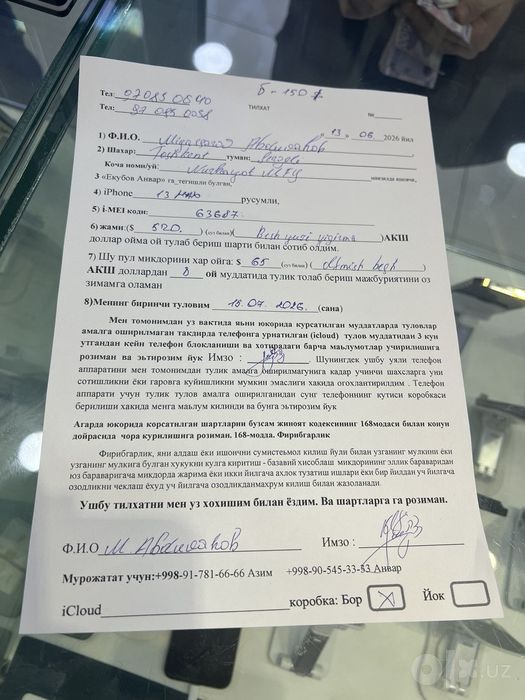 Б - 150
Тел:
Тел:
ТИЛХАТ
№
1) Ф.И.О. " 13 " 06 2026 йил
2) Шахар: Toshkent туман:
Коча номи/уй: манзилда яшовчи,
3 «Екубов Анвар» га тегишли булган,
4) iPhone 13 русумли,
5) i-MEI коди: 63687
6) жами:($ 520 ) (суз билан)( Besh yuz yigirma )АКШ
доллар ойма ой тулаб бериш шарти билан сотиб олдим.
7) Шу пул микдорини хар ойга: $ 65 (суз билан)( Oltmish besh )
АКШ доллардан 8 ой муддатида тулик толаб бериш мажбуриятини оз
зимамга оламан
8)Менинг биринчи туловим 15.07.2026. (сана)
Мен томонимдан уз вактида яъни юкорида курсатилган муддатларда туловлар
амалга оширилмаган такдирда телефонга урнатилган (icloud) тулов муддатидан 3 кун
утгандан кейн телефон блокланиши ва хотирадаги барча маълумотлар учирилишига
розиман ва эътирозим йук Имзо : Шунингдек ушбу уяли телефон
аппаратини мен томонимдан тулик амалга оширилмагунига кадар учинчи шахсларга уни
сотишликни ёки гаровга куйишликни мумкин эмаслиги хакида огохлантирилдим . Телефон
аппарати учун тулик тулов амалга оширилганидан сунг телефоннинг кутиси коробкаси
берилиши хакида менга маълум килинди ва бунга эътирозим йук
Агарда юкорида корсатилган шартларни бузсам жиноят кодексининг 168модаси билан конун
дойрасида чора курилишига розиман. 168-модда. Фирибгарлик
Фирибгарлик, яни алдаш ёки ишончни суистемол килиш йули билан узганинг мулкини ёки
узганинг мулкига булган хукукни кулга киритиш - базавий хисоблаш микдорининг эллик бараваридан
юз бараваригача микдорда жарима ёки икки йилгача ахлок тузатиш ишлари ёки бир йилдан уч йилгача
озодликни чеклаш ёхуд уч йилгача озодликданмахрум килиш билан жазоланади.
Ушбу тилхатни мен уз хохишим билан ёздим. Ва шартларга га розиман.
Ф.И.О Имзо :
Мурожатат учун:+998-91-781-66-66 Азим +998-90-545-33-53 Анвар
iCloud коробка: Бор Йок
olx.uz